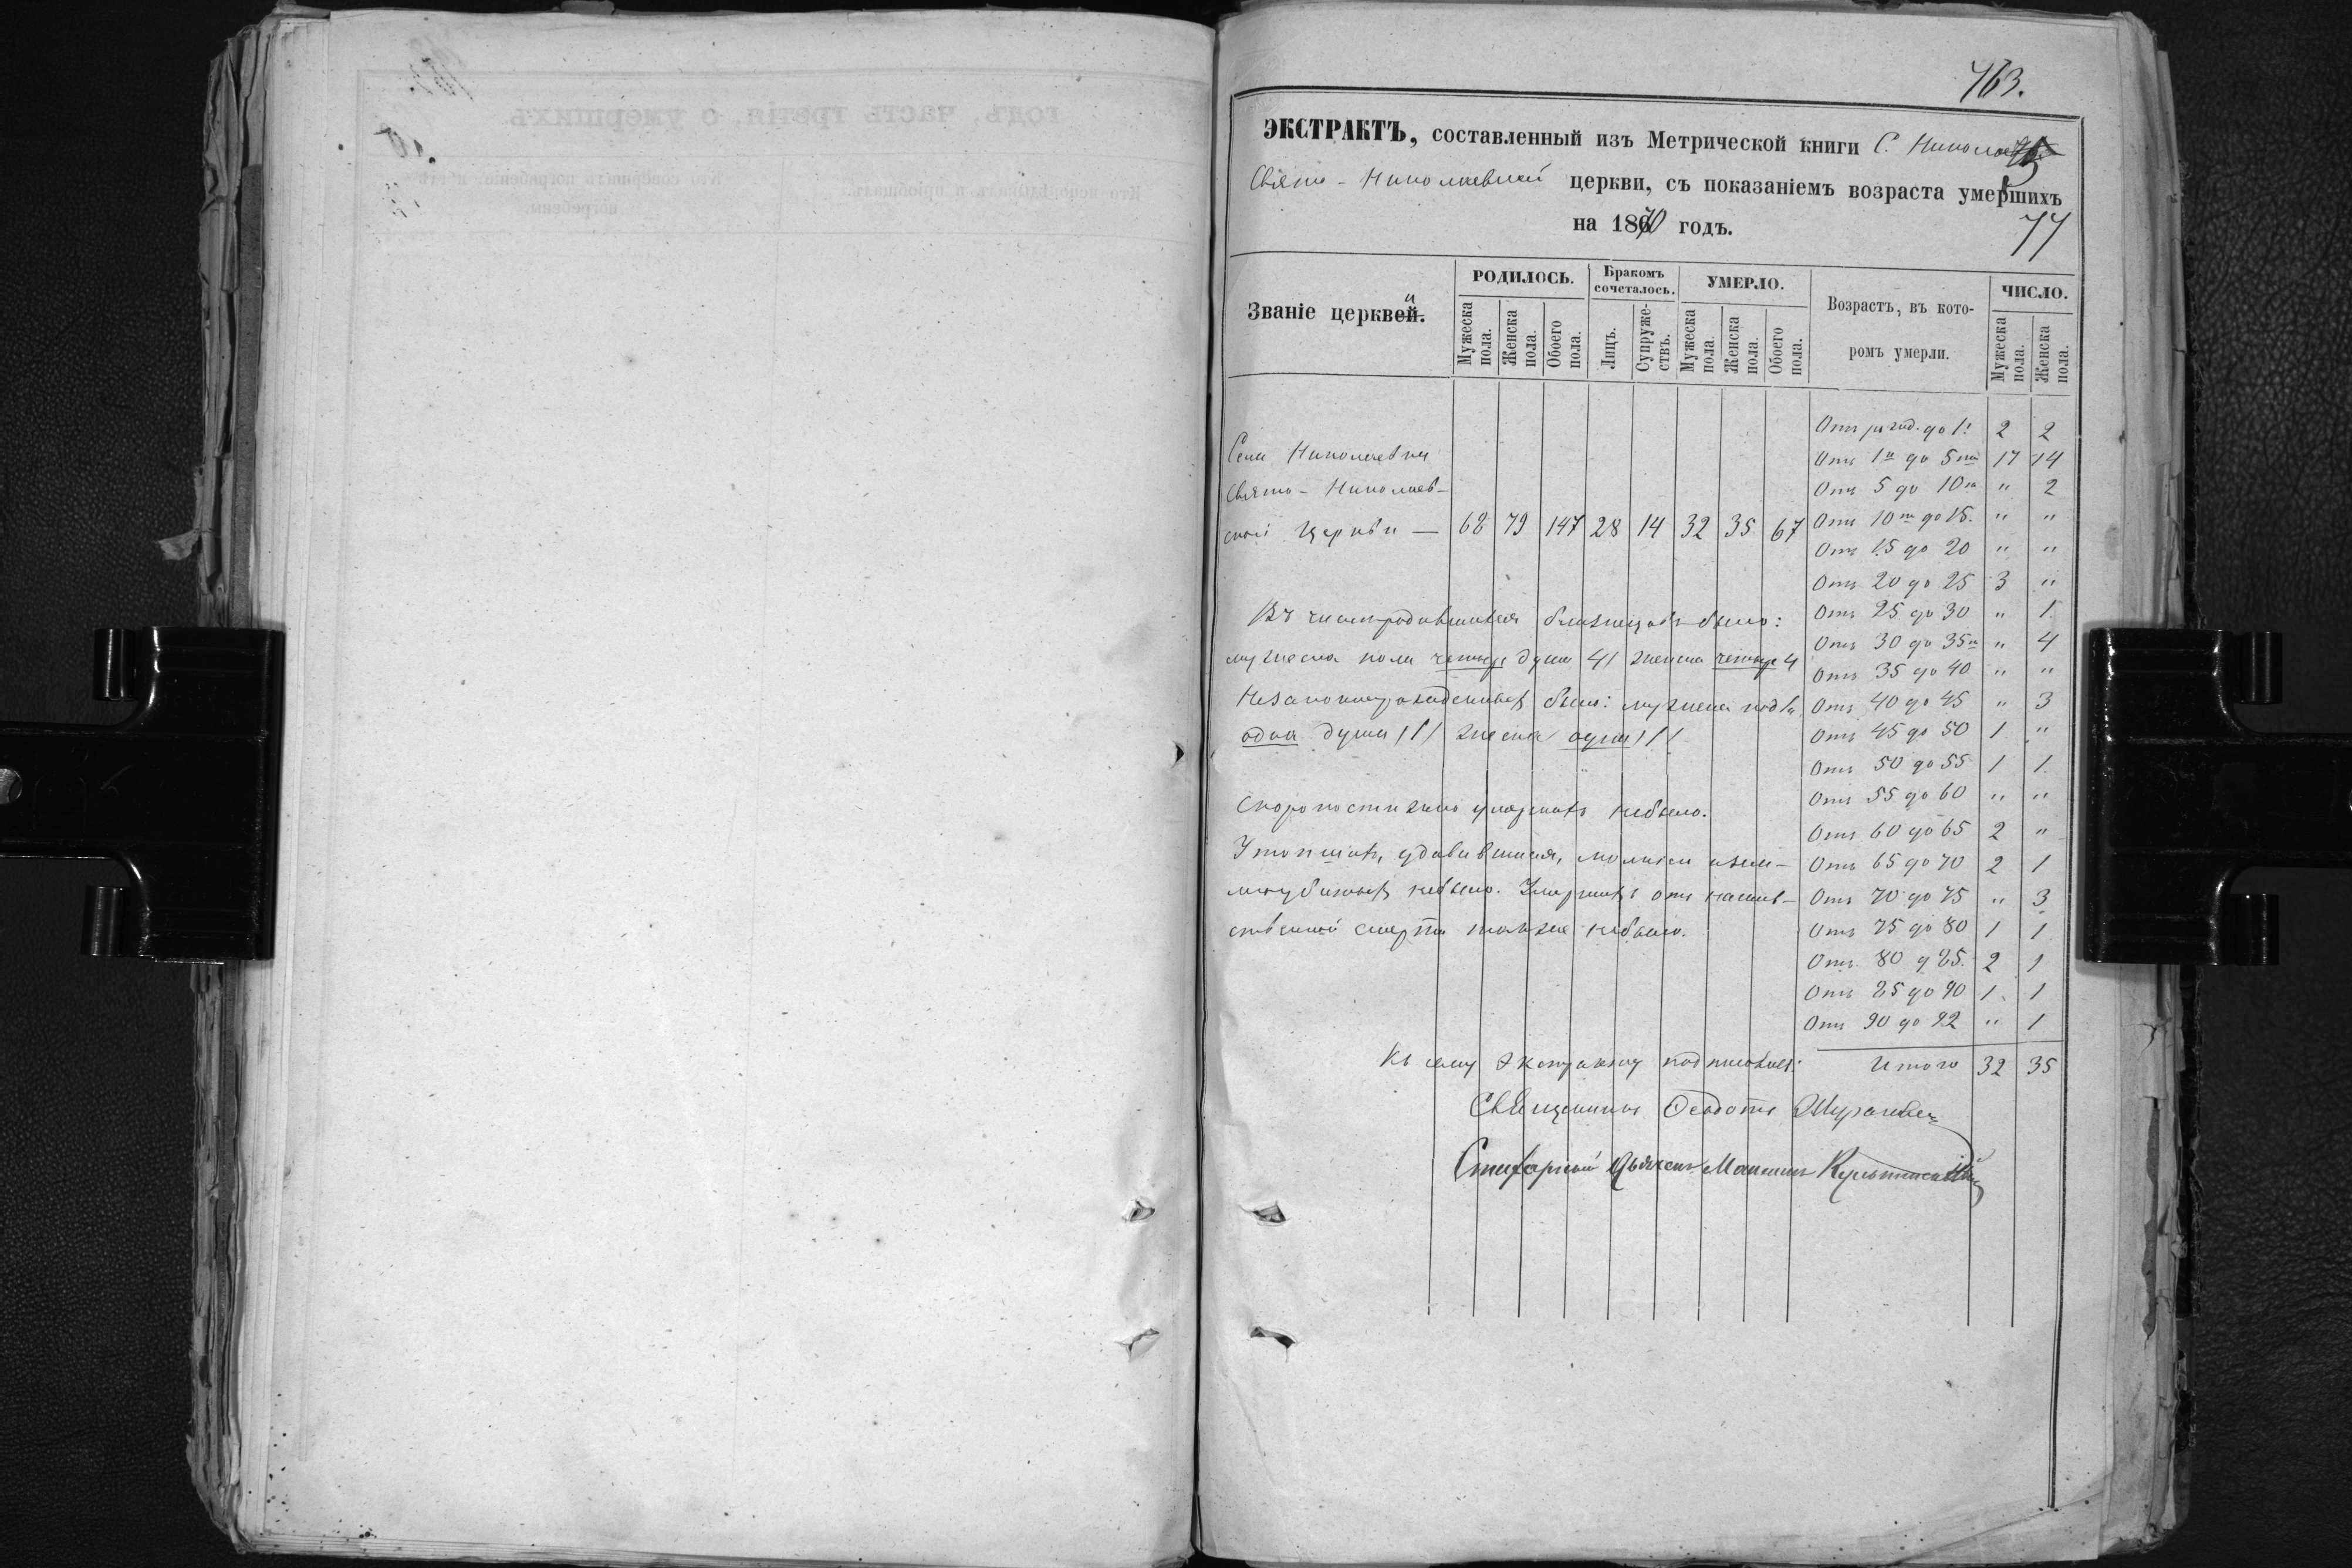 763.
ЭКСТРАКТЪ, составленный изъ Метрической книги С. Николаевки
Свято-Николаевской церкви, съ показаніемъ возраста умершихъ
на 1870 годъ.
77
Званіе церкви.
РОДИЛОСЬ.
Мужеска пола.
Женска пола.
Обоего пола.
Бракомъ сочеталось.
Лицъ.
Супружествъ.
УМЕРЛО.
Мужеска пола.
Женска пола.
Обоего пола.
Возрастъ, въ которомъ умерли.
ЧИСЛО.
Мужеска пола.
Женска пола.
Села Николаевки
Свято-Николаев-
ской Церкви — 68 79 147 28 14 32 35 67
Въ числѣ родившихся близнецовъ было:
мужеска пола четыре души /4/ женска четыре 4
Незаконнорожденныхъ было: мужеска пола
одна душа /1/ женска одна /1/
Скоропостижно умершихъ небыло.
Утопшихъ, удавившихся,
небыло. Умершихъ отъ насиль-
ственной смерти также небыло.
Отъ до 1. 2 2
Отъ 1го до 5ти 17 14
Отъ 5 до 10ти " 2
Отъ 10ти до 15. " "
Отъ 15 до 20 " "
Отъ 20 до 25 3 "
Отъ 25 до 30 " 1.
Отъ 30 до 35ти " 4
Отъ 35 до 40 " "
Отъ 40 до 45 " 3
Отъ 45 до 50 1 "
Отъ 50 до 55 1 1.
Отъ 55 до 60 " "
Отъ 60 до 65 2 "
Отъ 65 до 70 2 1
Отъ 70 до 75 " 3
Отъ 75 до 80 1 1
Отъ 80 д 85. 2 1
Отъ 85 до 90 1. 1
Отъ 90 до 92 " 1
Итого 32 35
Къ сему Экстракту подписались:
Священникъ Ѳеодотъ
Стихарный Дьячекъ